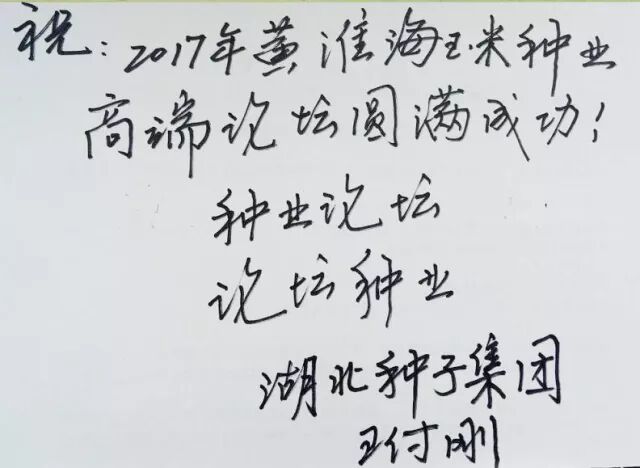 祝:2017年黄淮海玉米种业
高端论坛圆满成功!
种业论坛
论坛种业
湖北种子集团
王付刚